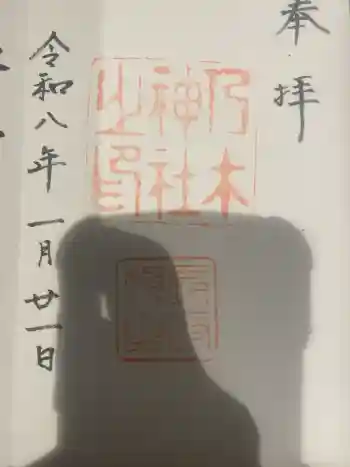 奉拝
乃木
神社
之印
令和八年一月廿一日